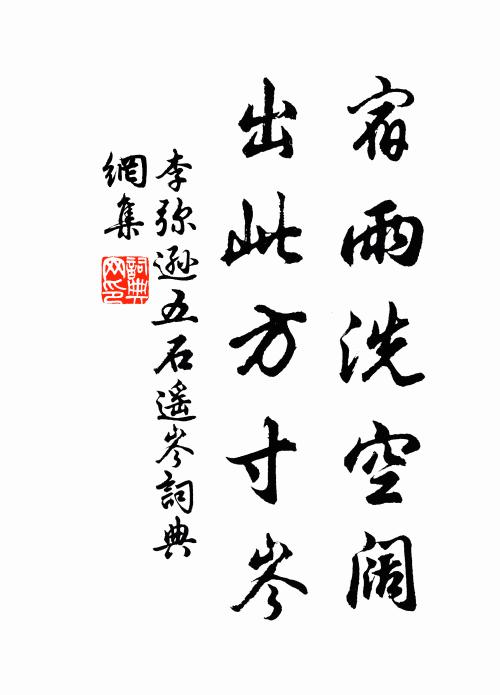 宿雨洗空阔
出此方寸岑
李弥逊五石遥岑詞典
網集
詞典
网印